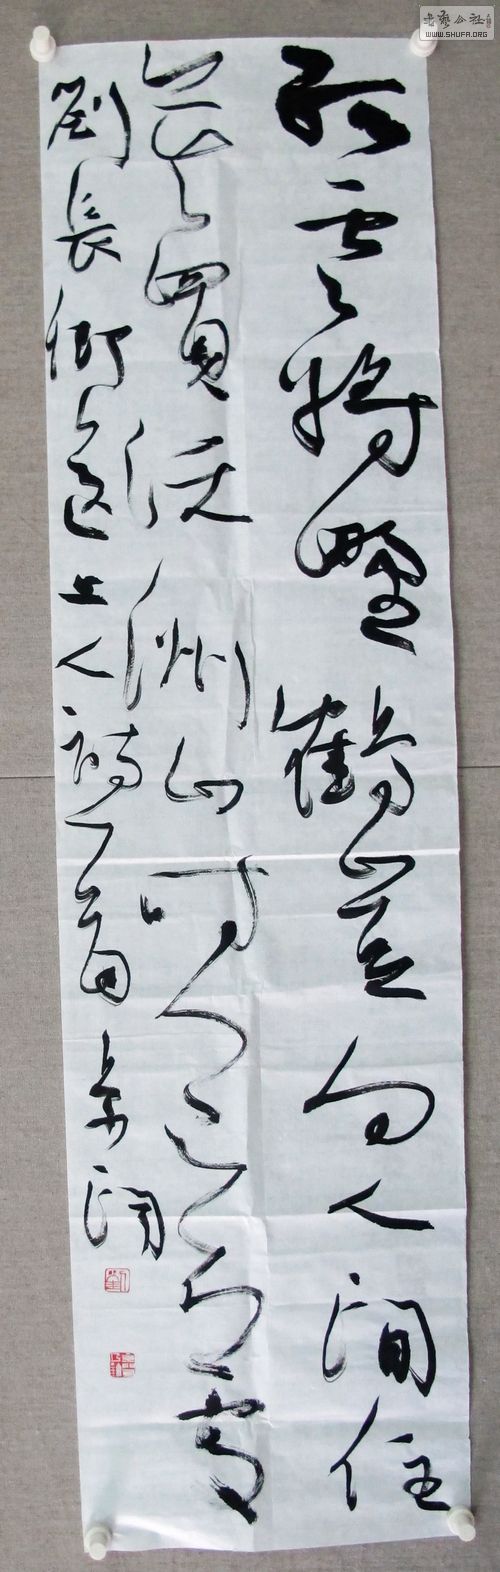 孤雲將野鶴豈向人間住
莫買沃洲山時人已知處
劉長卿送上人詩一首
书艺公社
WWW.SHUFA.ORG